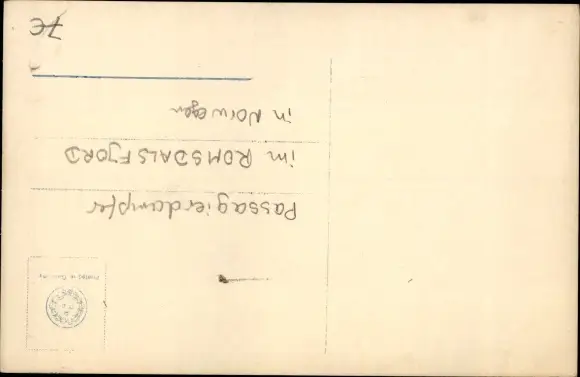 Printed in Germany
Passagierdampfer
im ROMSDALSFJORD
in Norwegen
7€